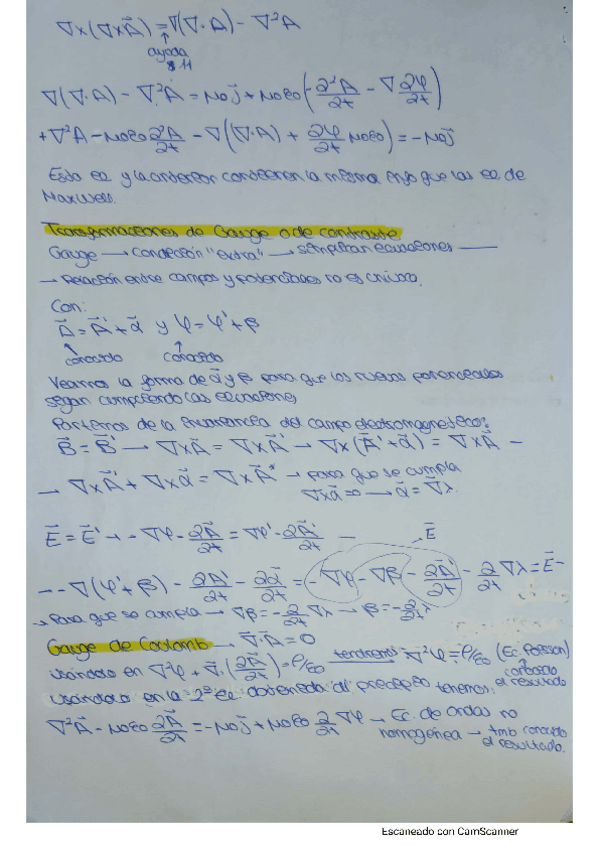 ∇×(∇×A⃗) = ∇(∇·A) - ∇²A
↑
ayuda
s 11
∇(∇·A) - ∇²A = μ₀j⃗ + μ₀ε₀(-∂²A/∂t - ∇ ∂φ/∂t)
+∇²A - μ₀ε₀ ∂²A/∂t - ∇(∇·A) + ∂φ/∂t μ₀ε₀) = -μ₀j⃗
Esta ec y la anterior contienen la misma info que las ec de
Maxwell.
Transformaciones de Gauge o de contraste
Gauge → condición "extra" → simplifican ecuaciones —
→ Relación entre campos y potenciales no es única.
Con:
A⃗ = A⃗' + α⃗ y φ = φ' + β
conocido conocido
Veamos la forma de α⃗ y β para que los nuevos potenciales
sigan cumpliendo las ecuaciones
Partimos de la invarianza del campo electromagnético:
B⃗ = B⃗' → ∇×A⃗ = ∇×A⃗' → ∇×(A⃗' + α⃗) = ∇×A⃗ -
→ ∇×A⃗' + ∇×α⃗ = ∇×A⃗' → para que se cumpla
∇×α⃗ = 0 → α⃗ = ∇⃗λ.
E⃗ = E⃗' → -∇φ - ∂A⃗/∂t = ∇φ' - ∂A⃗'/∂t — E⃗
-- -∇(φ' + β) - ∂A'/∂t - ∂α⃗/∂t = -∇φ - ∇β - ∂A⃗'/∂t - ∂/∂t ∇λ = E⃗ -
→ Para que se cumpla → ∇β = -∂/∂t ∇λ → β = -∂/∂t λ
Gauge de Coulomb → ∇⃗·A⃗ = 0
usándolo en ∇²φ + ∇⃗·(∂A⃗/∂t) = ρ/ε₀ tendremos → ∇²φ = ρ/ε₀ (Ec. Poisson)
conocido
el resultado
usándola en la 2ª ec obtenida al principio tenemos:
∇²A⃗ - μ₀ε₀ ∂²A⃗/∂t = -μ₀j⃗ + μ₀ε₀ ∂/∂t ∇φ → Ec. de ondas no
homogénea → tmb conocido
el resultado.
Escaneado con CamScanner